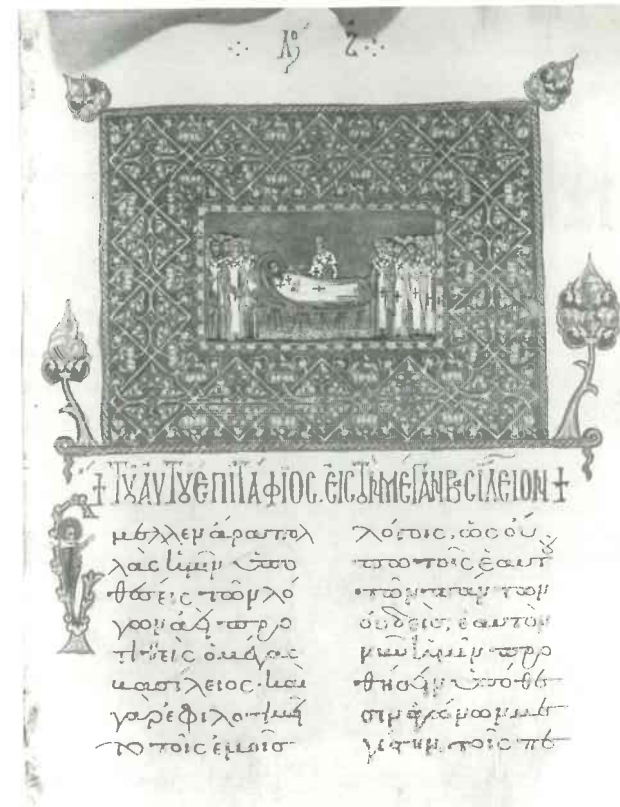 Λο Ζ
+ ΤΟΥ ΑΥΤΟΥ ΕΠΙΤΑΦΙΟΣ. ΕΙΣ ΤΟΝ ΜΕΓΑΝ ΒΑΣΙΛΕΙΟΝ +
Ἔμελλεν ἄρα πολ
λὰς ἡμῖν ὑπο
θέσεις τῶν λό
γων ἀεὶ προ
τιθεὶς ὁ μέγας
βασίλειος· καὶ
γὰρ ἐφιλοτιμεῖ
το τοῖς ἐμοῖς
λόγοις, ὡς οὔ
πω τοῖς ἑαυτοῦ
τῶν πάντων
οὐδείς, ἑαυτὸν
νῦν ἡμῖν προ
θήσειν ὑπόθε
σιν ἀγώνων με
γίστην, τοῖς πε